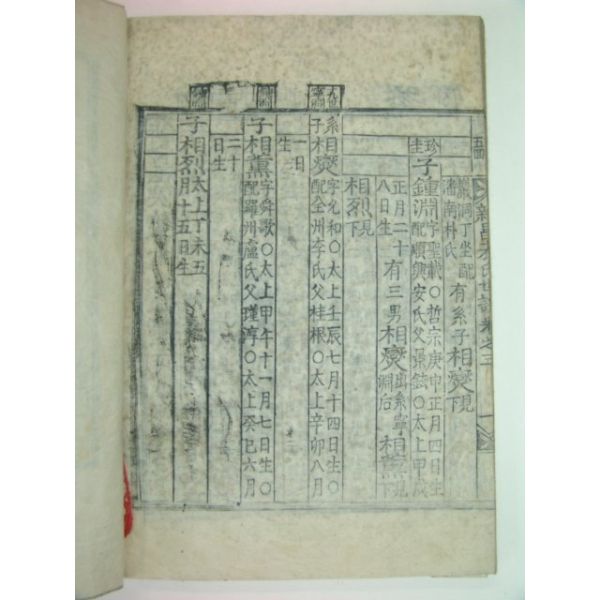 氏世譜 卷之三 一
洞丁坐配
潘南朴氏
有系子相燮下現
子鍾淵 字聖 ○哲宗庚申正月四日生
配順興安氏父 ○太上甲戌
正月二十八日生 有三男相燮出系寧淵后相薰下現
相烈下現
系子相燮 字允和○太上壬辰七月十四日生○
配全州李氏父桂根○太上辛卯八月
一日生
子相薰 字舜歌○太上甲午十一月七日生○
配羅州盧氏父瑾淳○太上癸巳六月
二十日生
子相烈 太上丁未五月十五日生